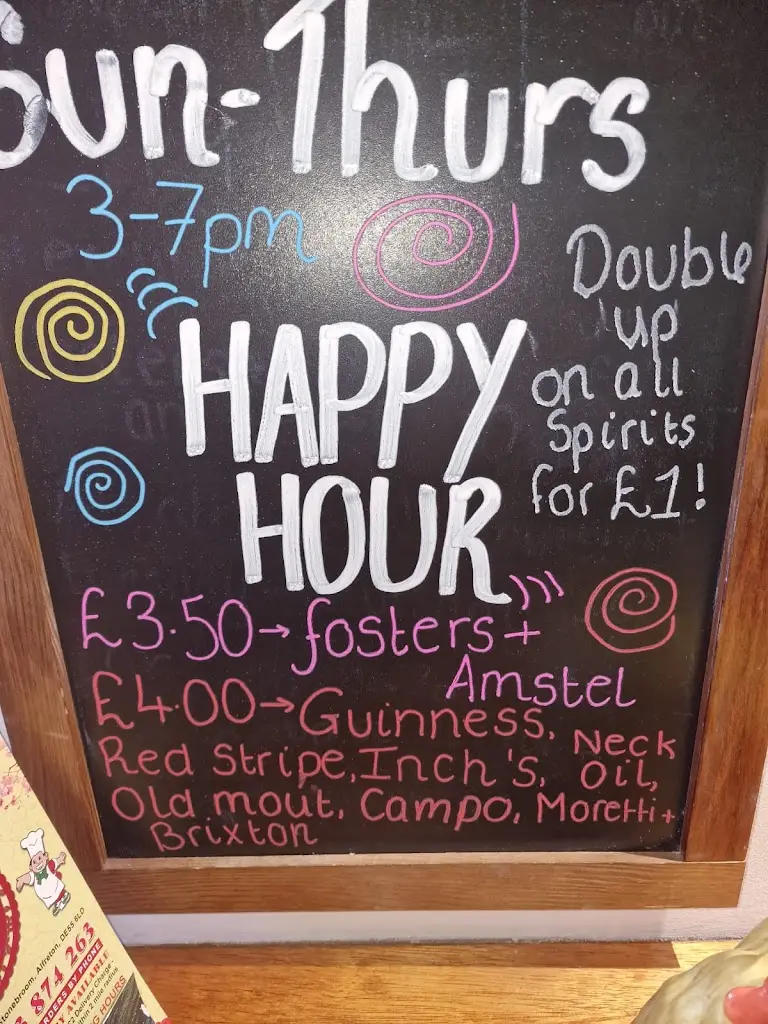 Sun-Thurs
3-7pm
HAPPY
HOUR
Double
up
on all
Spirits
for £1!
£3.50→fosters+
Amstel
£4.00→Guinness,
Red Stripe, Inch's, Neck
Oil,
Old mout, Campo, Moretti+
Brixton
Stonebroom, Alfreton, DE55 6LD
874 263
ORDERS BY PHONE
AVAILABLE
Delivery Charge -
within 2 mile radius
HOURS